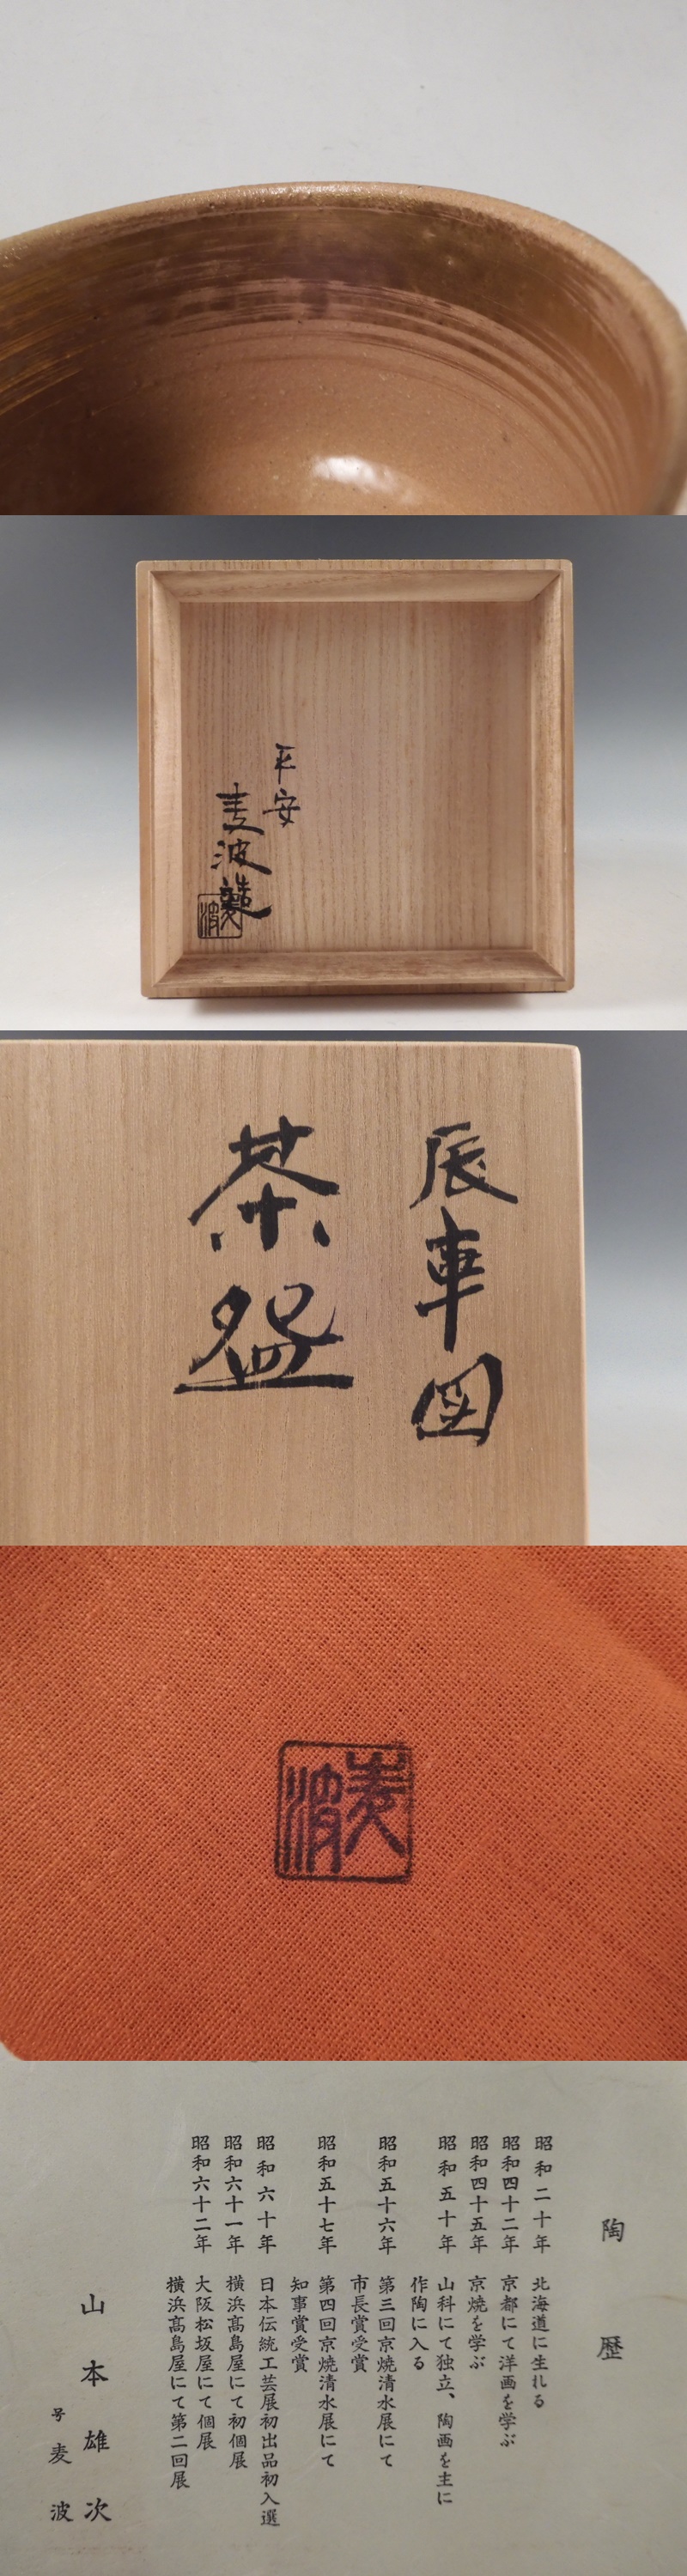 平安
麦波造
麦波
辰車図
茶盌
麦波
陶歴
昭和二十年 北海道に生れる
昭和四十二年 京都にて洋画を学ぶ
昭和四十五年 京焼を学ぶ
昭和五十年 山科にて独立、陶画を主に
作陶に入る
昭和五十六年 第三回京焼清水展にて
市長賞受賞
昭和五十七年 第四回京焼清水展にて
知事賞受賞
昭和六十年 日本伝統工芸展初出品初入選
昭和六十一年 横浜髙島屋にて初個展
昭和六十二年 大阪松坂屋にて個展
横浜髙島屋にて第二回展
山本雄次
号 麦波